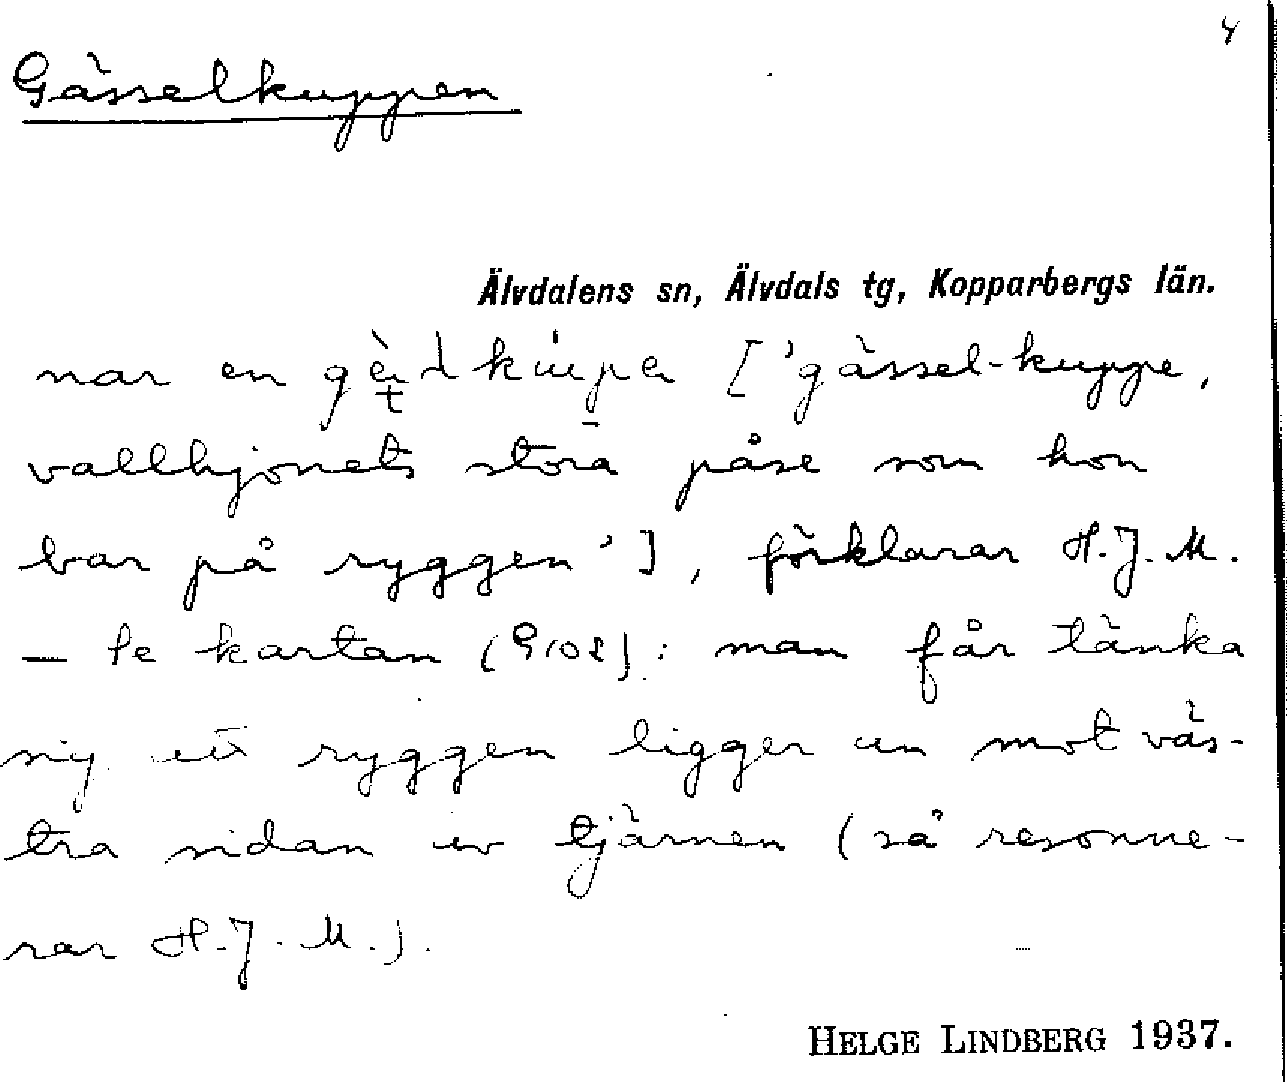 4
Gässelkuppen
Älvdalens sn, Älvdals tg, Kopparbergs län.
nar en ['gässel-kuppe,
vallhjonets stora påse som hon
bar på ryggen'], förklarar H.J.M.
– Se kartan (9102): man får tänka
sig att ryggen ligger an mot väs-
tra sidan av tjärnen (så resonne-
rar H.J.M.).
HELGE LINDBERG 1937.